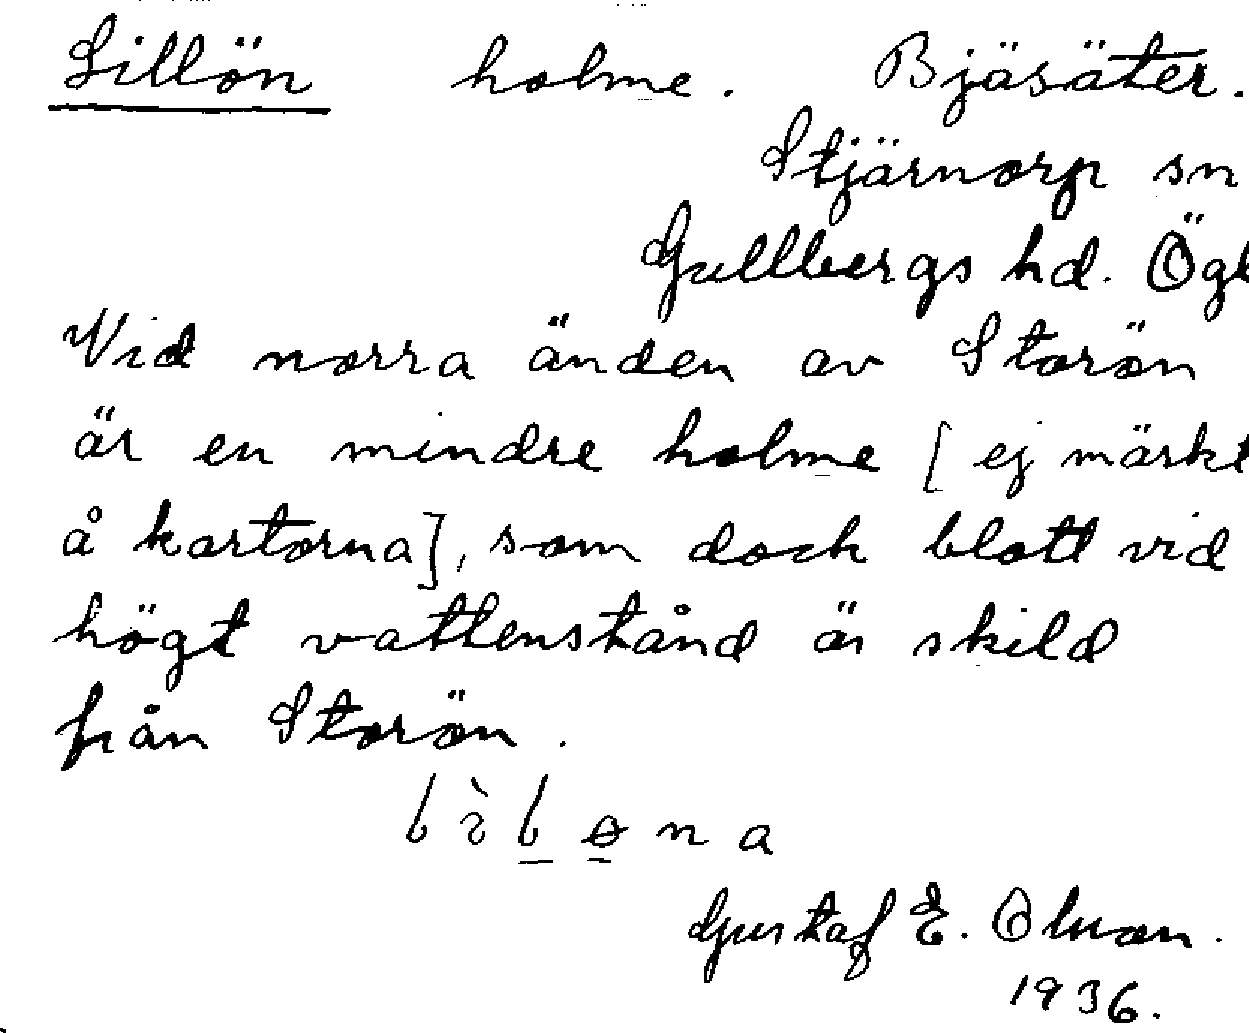 Lillön holme. Bjäsäter.
Stjärnorp sn
Gullbergs hd. Ögl
Vid norra änden av Storön
är en mindre holme [ ej märkt
å kartorna], som doch blott vid
högt vattenstånd är skild
från Storön.
Gustaf E. Olsson.
1936.